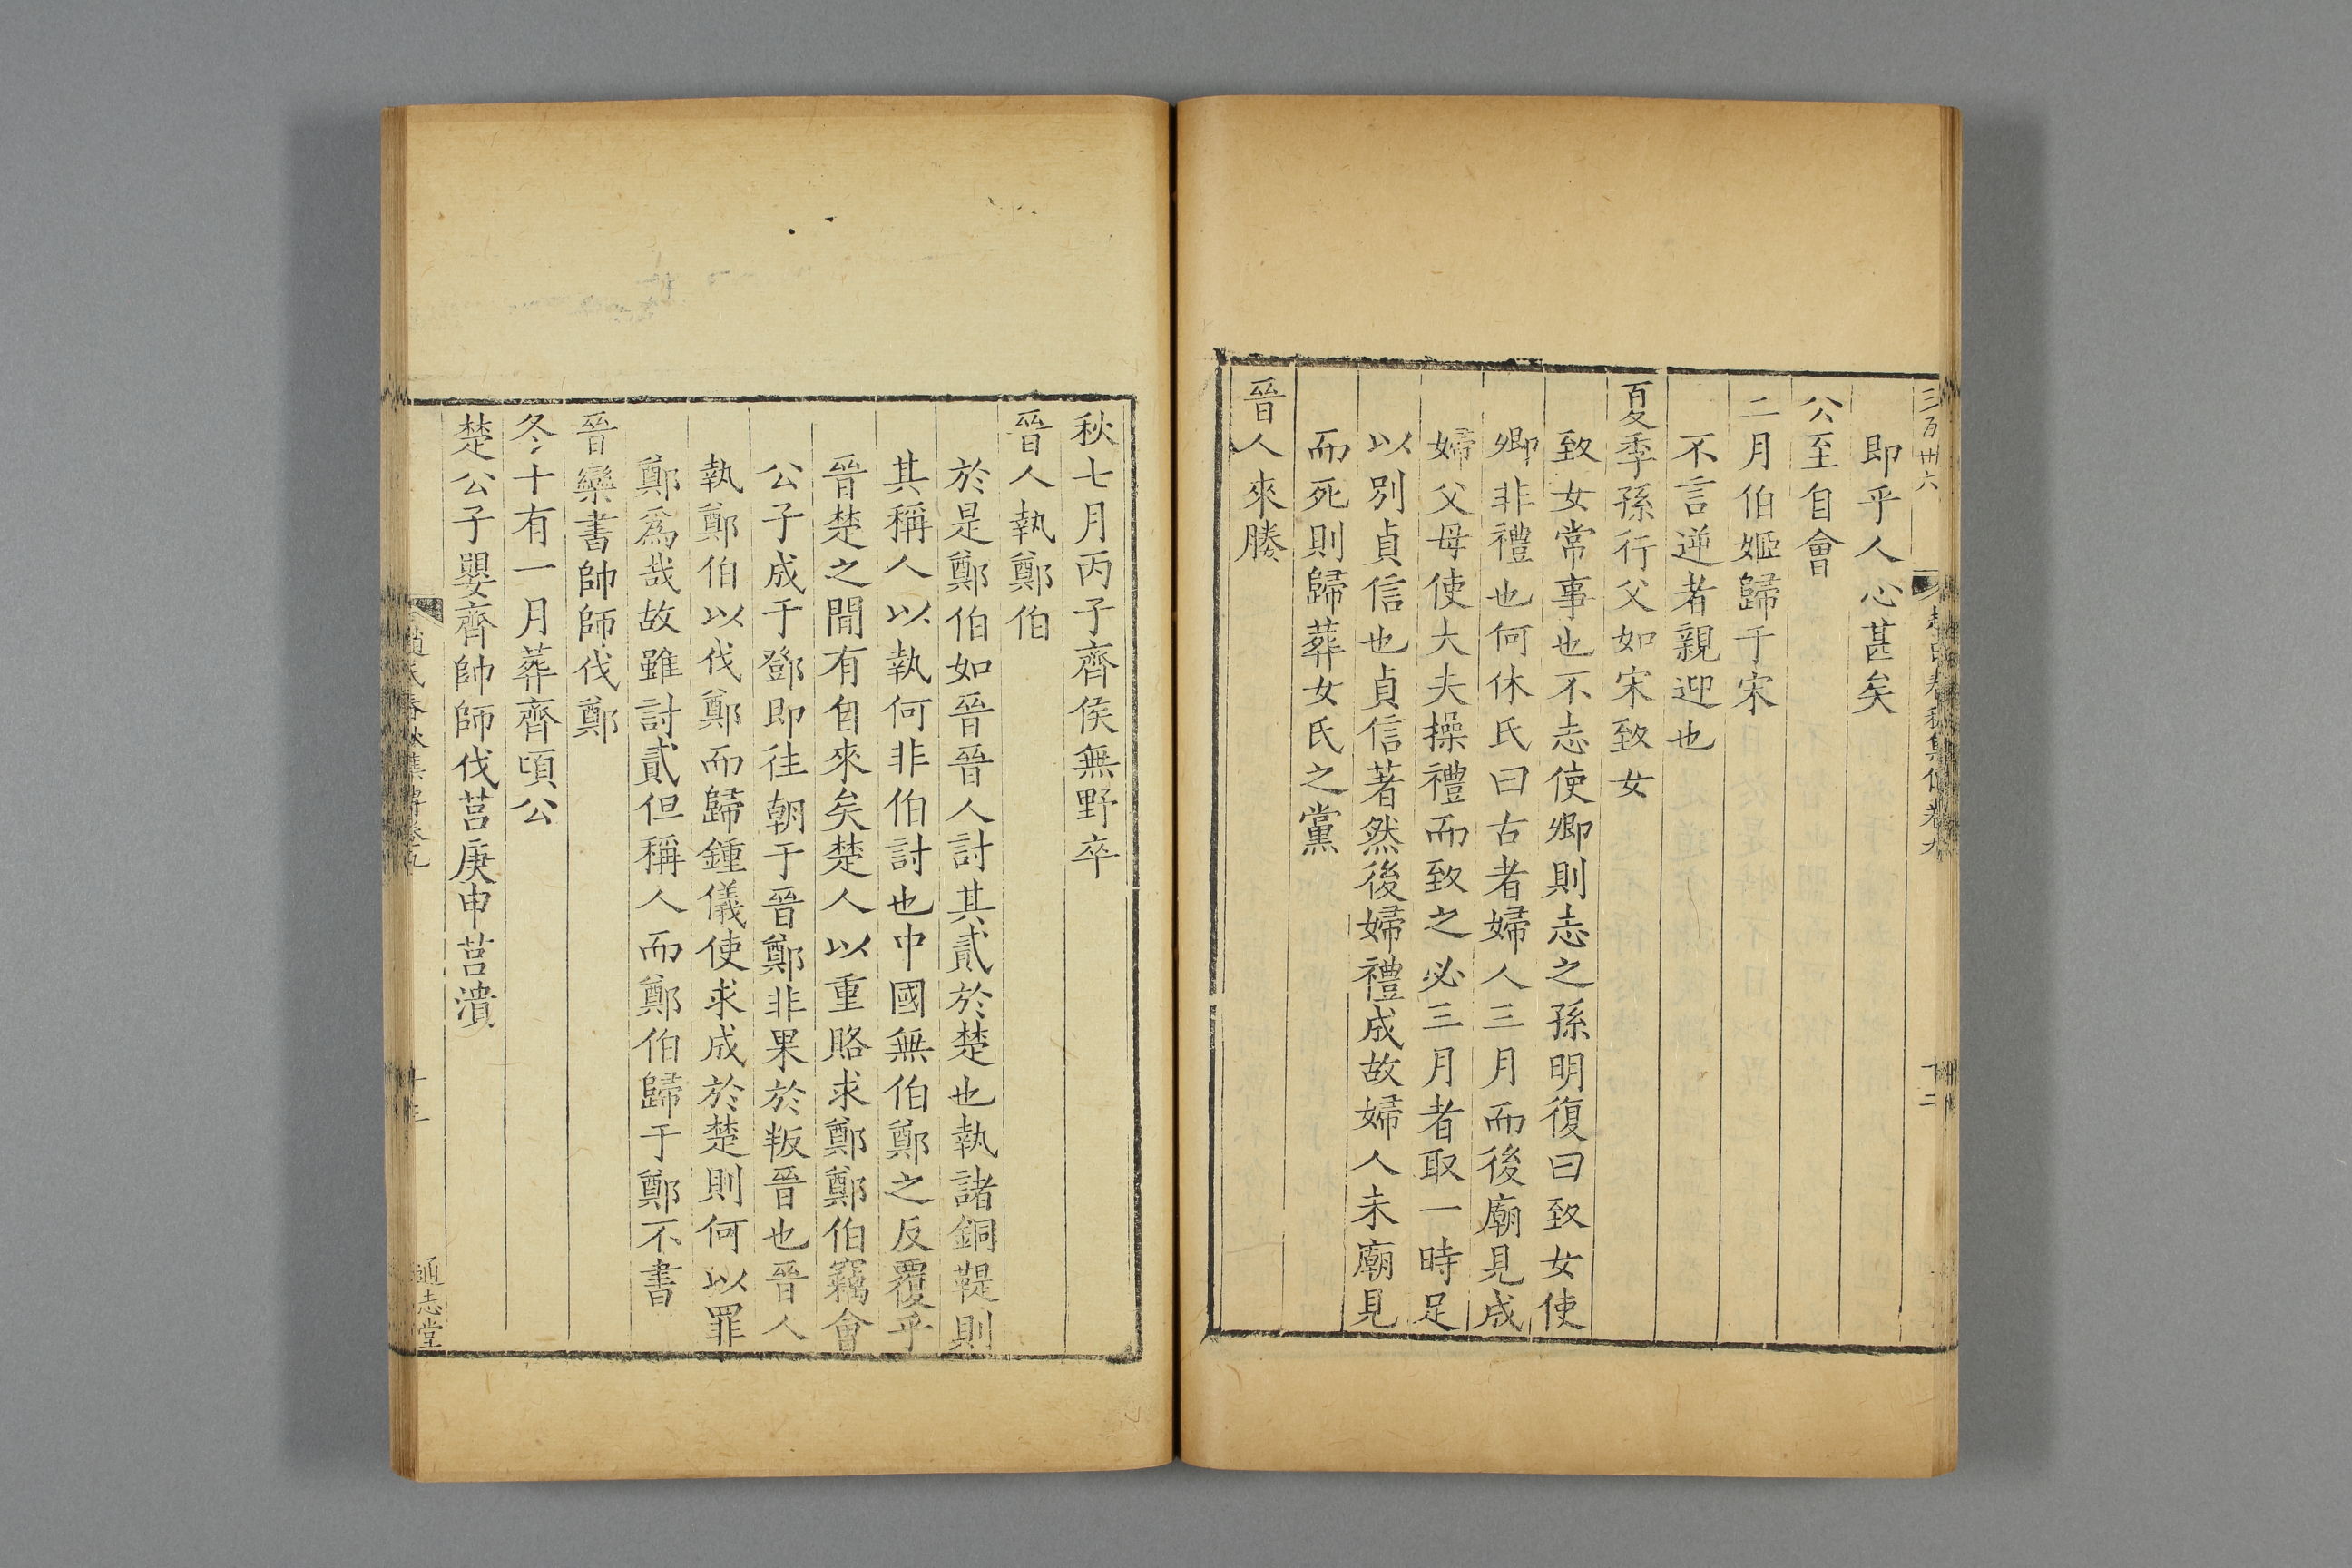 三百卅六
趙氏春秋集傳卷九
十二
即乎人心甚矣
公至自會
二月伯姬歸于宋
不言逆者親迎也
夏季孫行父如宋致女
致女常事也不志使卿則志之孫明復曰致女使
卿非禮也何休氏曰古者婦人三月而後廟見成
婦父母使大夫操禮而致之必三月者取一時足
以別貞信也貞信著然後婦禮成故婦人未廟見
而死則歸葬女氏之黨
晉人來媵
秋七月丙子齊侯無野卒
晉人執鄭伯
於是鄭伯如晉晉人討其貳於楚也執諸銅鞮則
其稱人以執何非伯討也中國無伯鄭之反覆乎
晉楚之間有自來矣楚人以重賂求鄭鄭伯竊會
公子成于鄧即往朝于晉鄭非果於叛晉也晉人
執鄭伯以伐鄭而歸鍾儀使求成於楚則何以罪
鄭爲哉故雖討貳但稱人而鄭伯歸于鄭不書
晉欒書帥師伐鄭
冬十有一月葬齊頃公
楚公子嬰齊帥師伐莒庚申莒潰
趙氏春秋集傳卷九
十三
通志堂